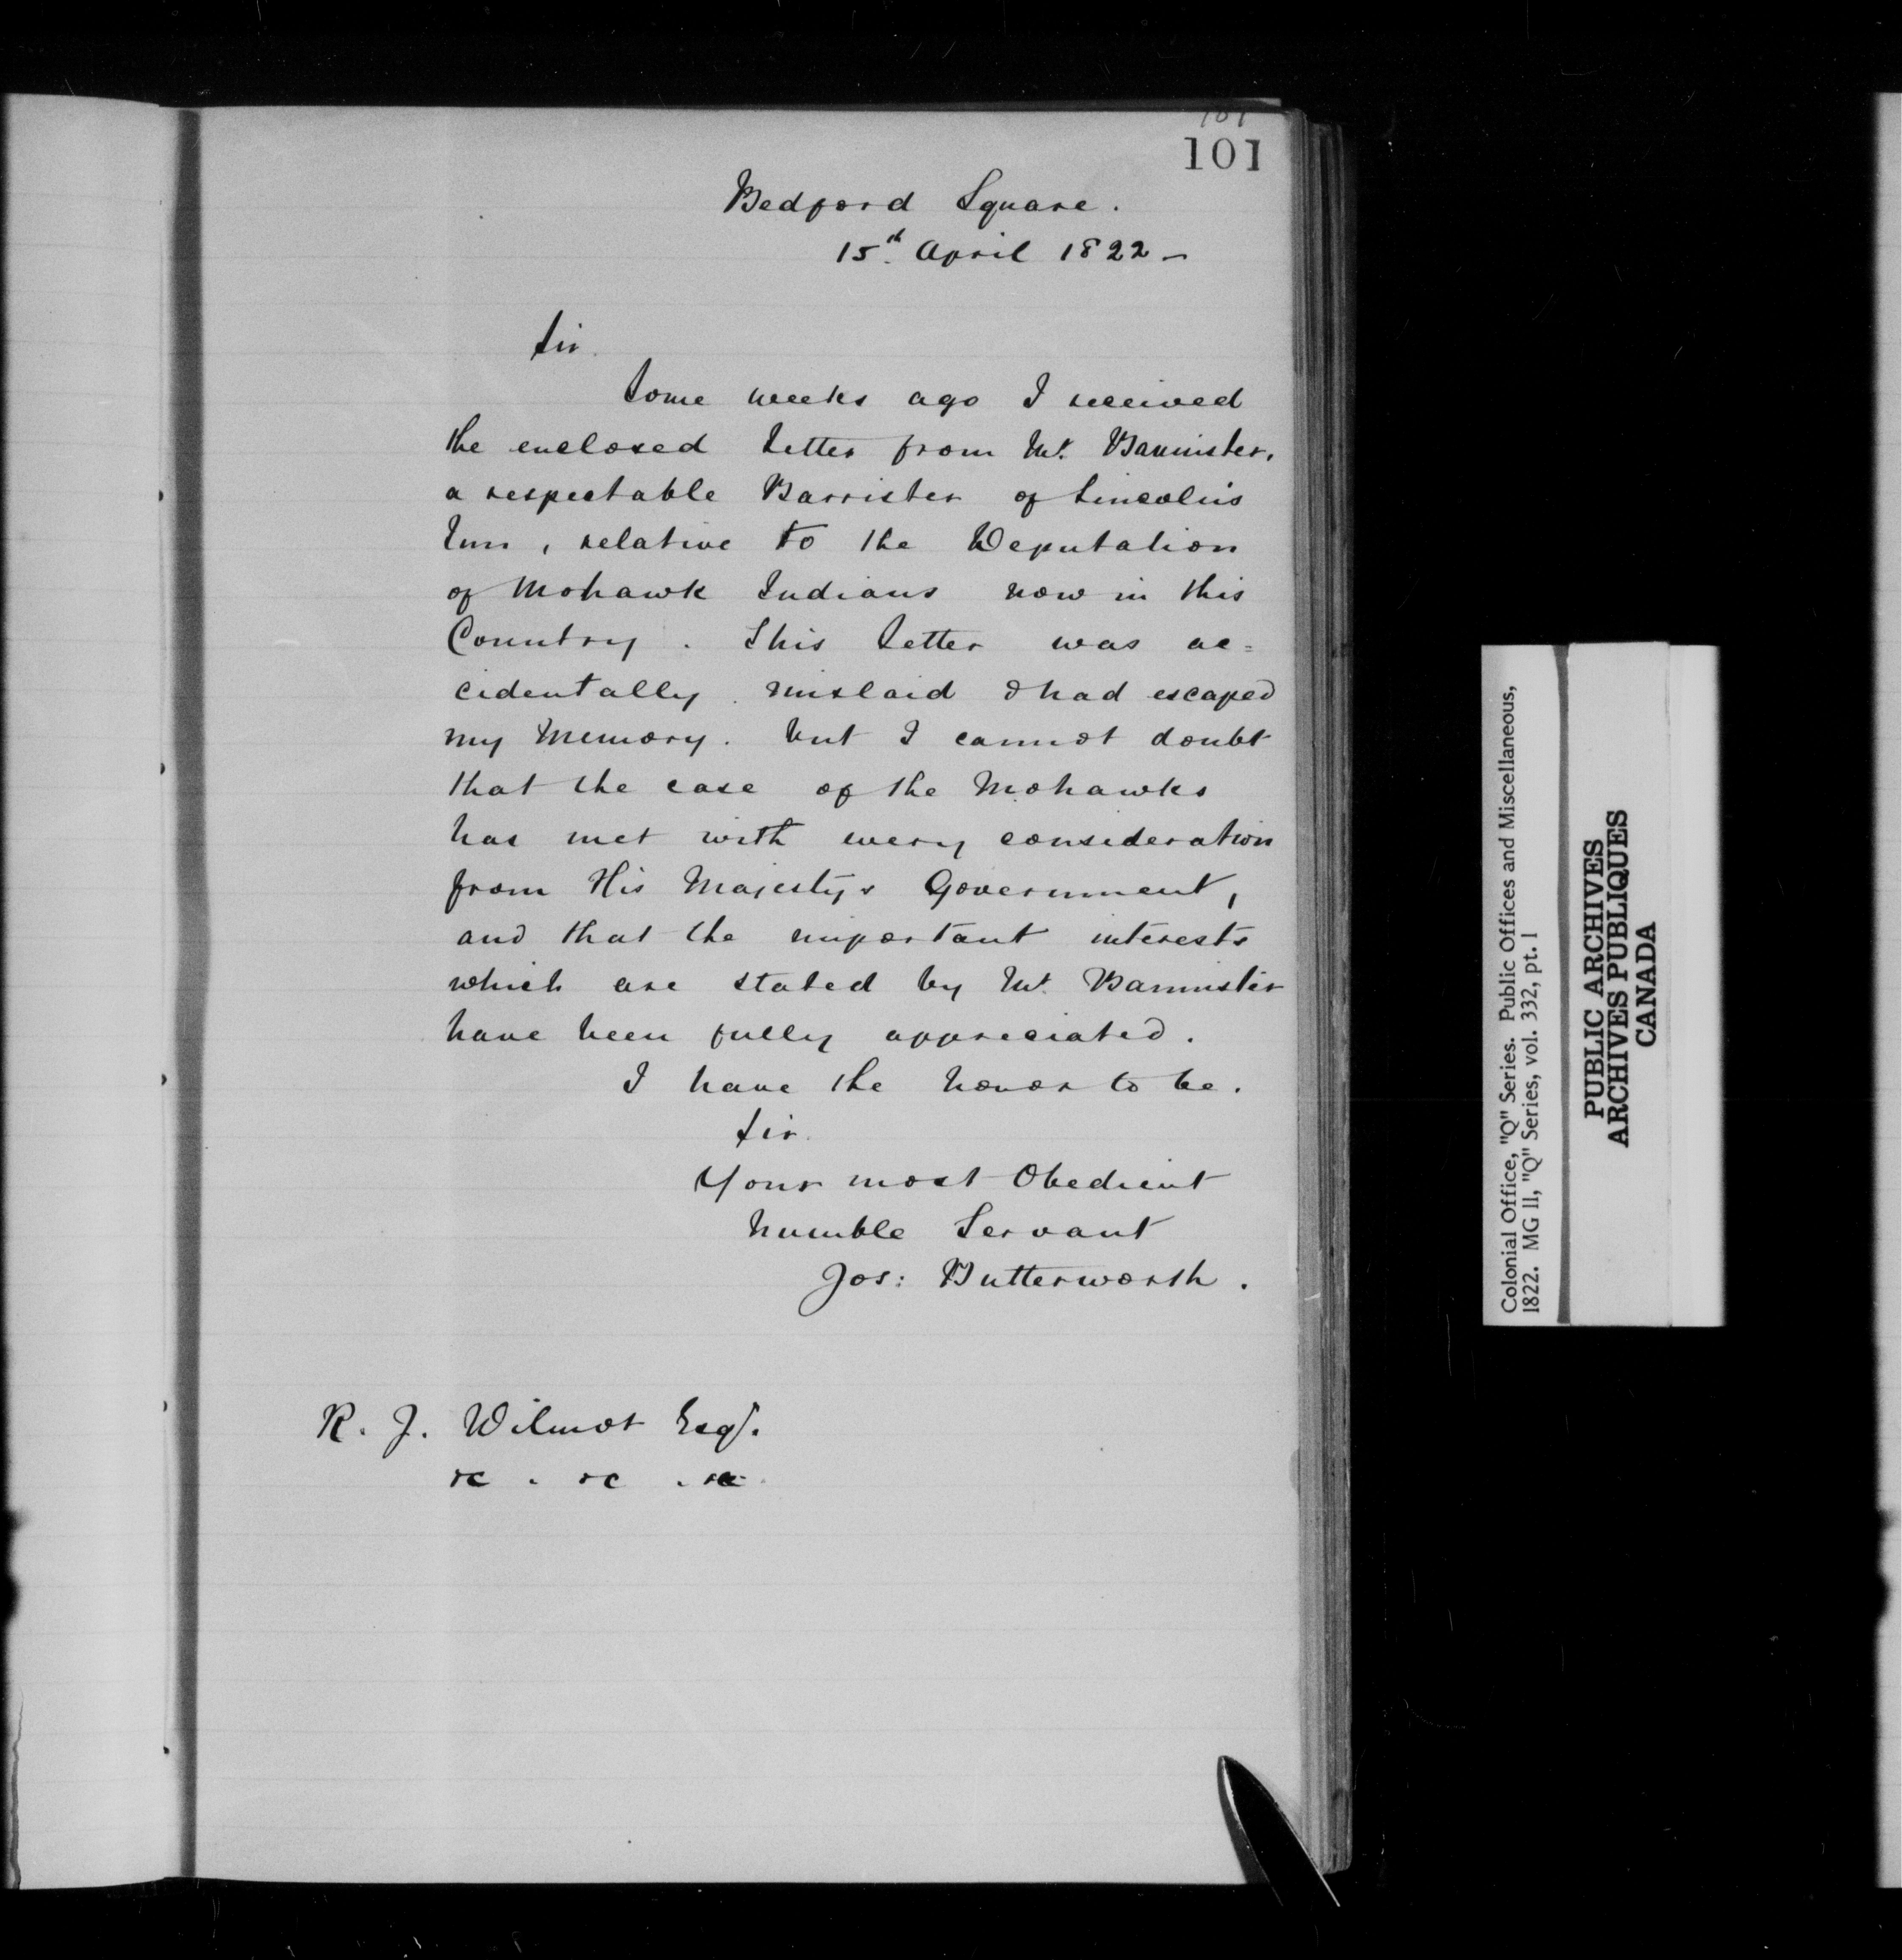 101
101
Bedford Square.
15th April 1822 –
Sir.
Some weeks ago I received
the enclosed Letter from Mr. Bannister,
a respectable Barrister of Lincoln's
Inn, relative to the Deputation
of Mohawk Indians now in this
Country. This Letter was ac=
cidentally mislaid & had escaped
my Memory. but I cannot doubt
that the case of the Mohawks
has met with every consideration
from His Majestys Government,
and that the important interests
which are stated by Mr. Bannister
have been fully appreciated.
I have the honor to be.
Sir.
Your most Obedient
humble Servant
Jos: Butterworth.
R. J. Wilmot Esqr.
&c. &c. &c.
Colonial Office, "Q" Series. Public Offices and Miscellaneous,
1822. MG 11, "Q" Series, vol. 332, pt. 1
PUBLIC ARCHIVES
ARCHIVES PUBLIQUES
CANADA